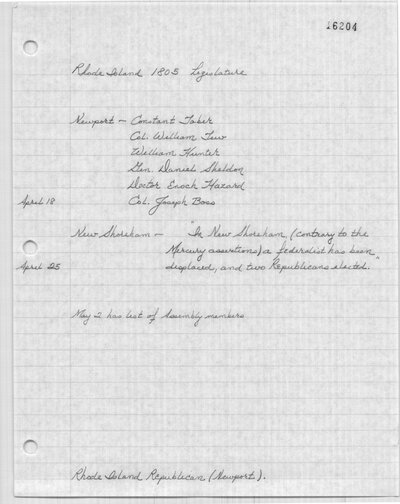 16204
Rhode Island 1805 Legislature
Newport — Constant Taber
Col. William Tew
William Hunter
Gen. Daniel Sheldon
Doctor Enoch Hazard
April 18 Col. Joseph Boss
New Shoreham — "In New Shoreham, (contrary to the
Mercury assertions) a federalist has been
April 25 displaced, and two Republicans elected."
May 2 has list of Assembly members
Rhode Island Republican (Newport).